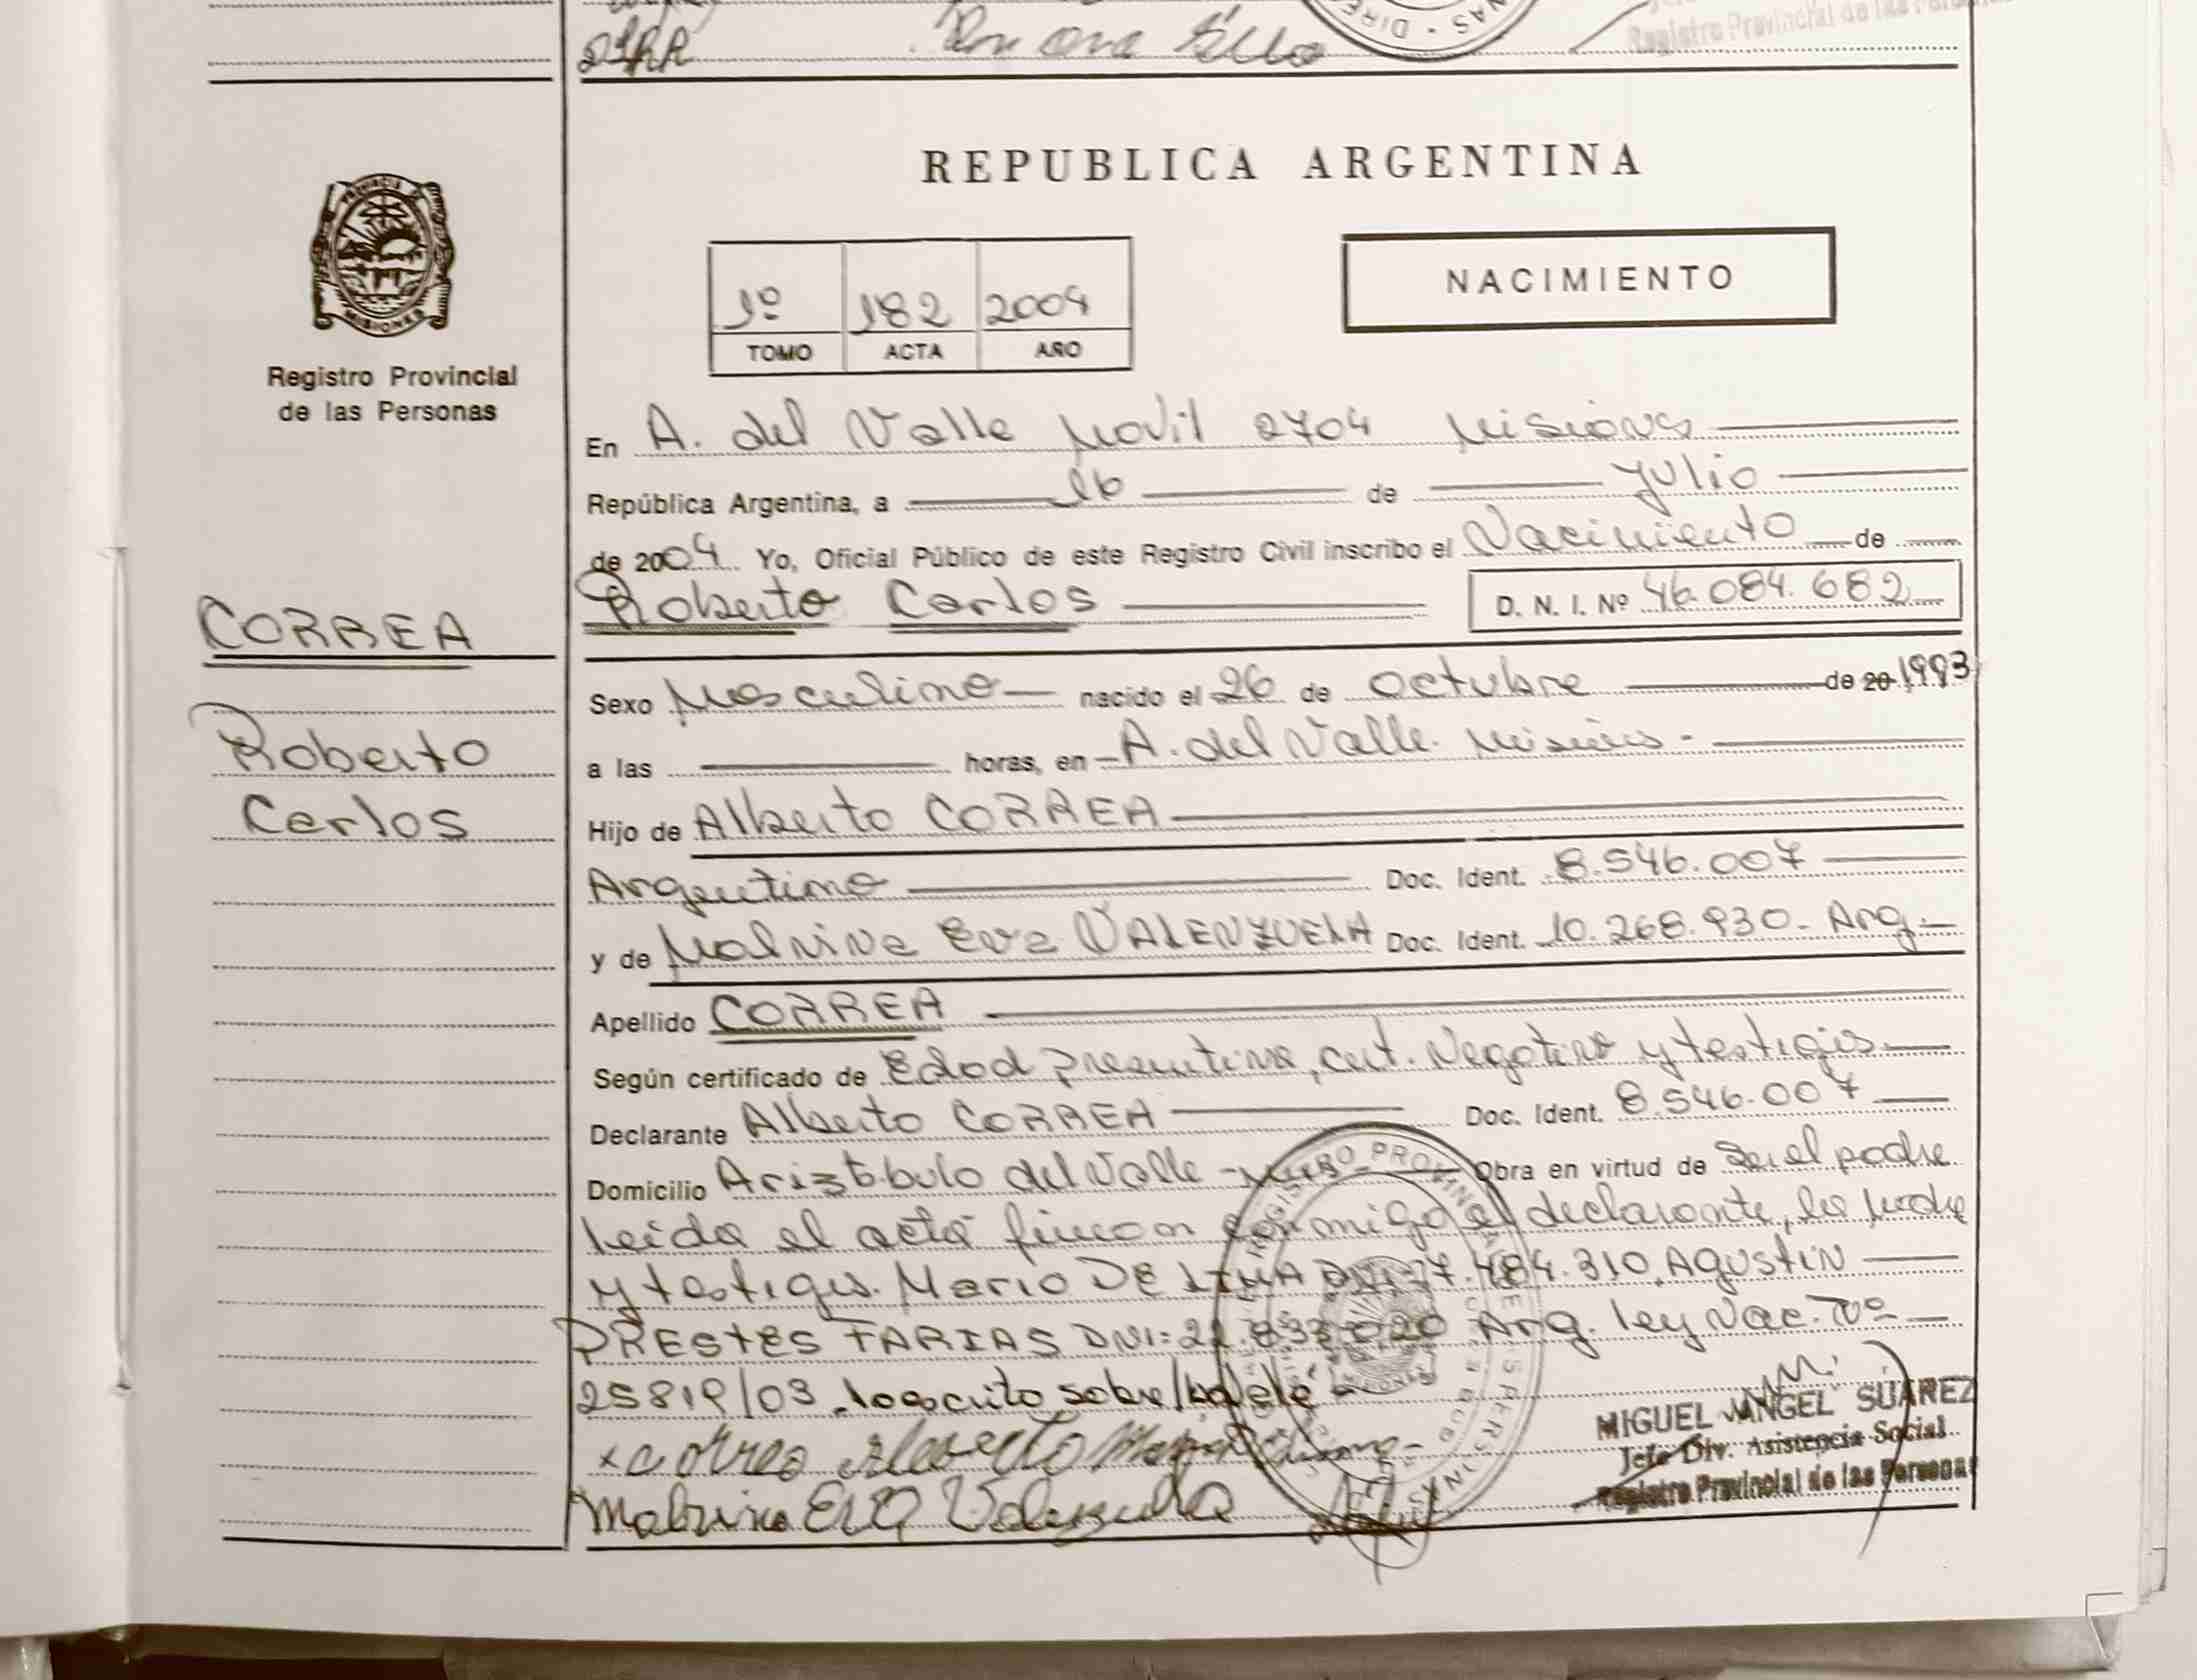 Registro Provincial de las
REPUBLICA ARGENTINA
NACIMIENTO
1º 182 2004
TOMO ACTA AÑO
MISIONES
Registro Provincial
de las Personas
En A. del Valle Movil 2704 Misiones
República Argentina, a 16 de Julio
de 2004 Yo, Oficial Público de este Registro Civil inscribo el Nacimiento de
Roberto Carlos D. N. I. Nº 46.084.682
CORREA
Roberto
Carlos
Sexo Masculino nacido el 26 de Octubre de 20 1993
a las horas, en A. del Valle. Misiones -
Hijo de Alberto CORREA
Argentino Doc. Ident. 8.546.007
y de Malvina Eva VALENZUELA Doc. Ident. 10.268.930- Arg.-
Apellido CORREA
Según certificado de Edad presuntiva, cert. Negativo y testigos
Declarante Alberto CORREA Doc. Ident. 8.546.007
Domicilio Aristóbulo del Valle Obra en virtud de Ser el padre
Leida el acta firman conmigo el declarante, la madre
y testigos. Mario DE LIMA DNI: 484.310, AGUSTIN
PRESTES FARIAS DNI: Arg. Ley Nac. Nº
25819/03 sobre
MIGUEL ANGEL SUAREZ
Jefe Div. Asistencia Social
Registro Provincial de las Personas
Malvina Eva Valenzuela